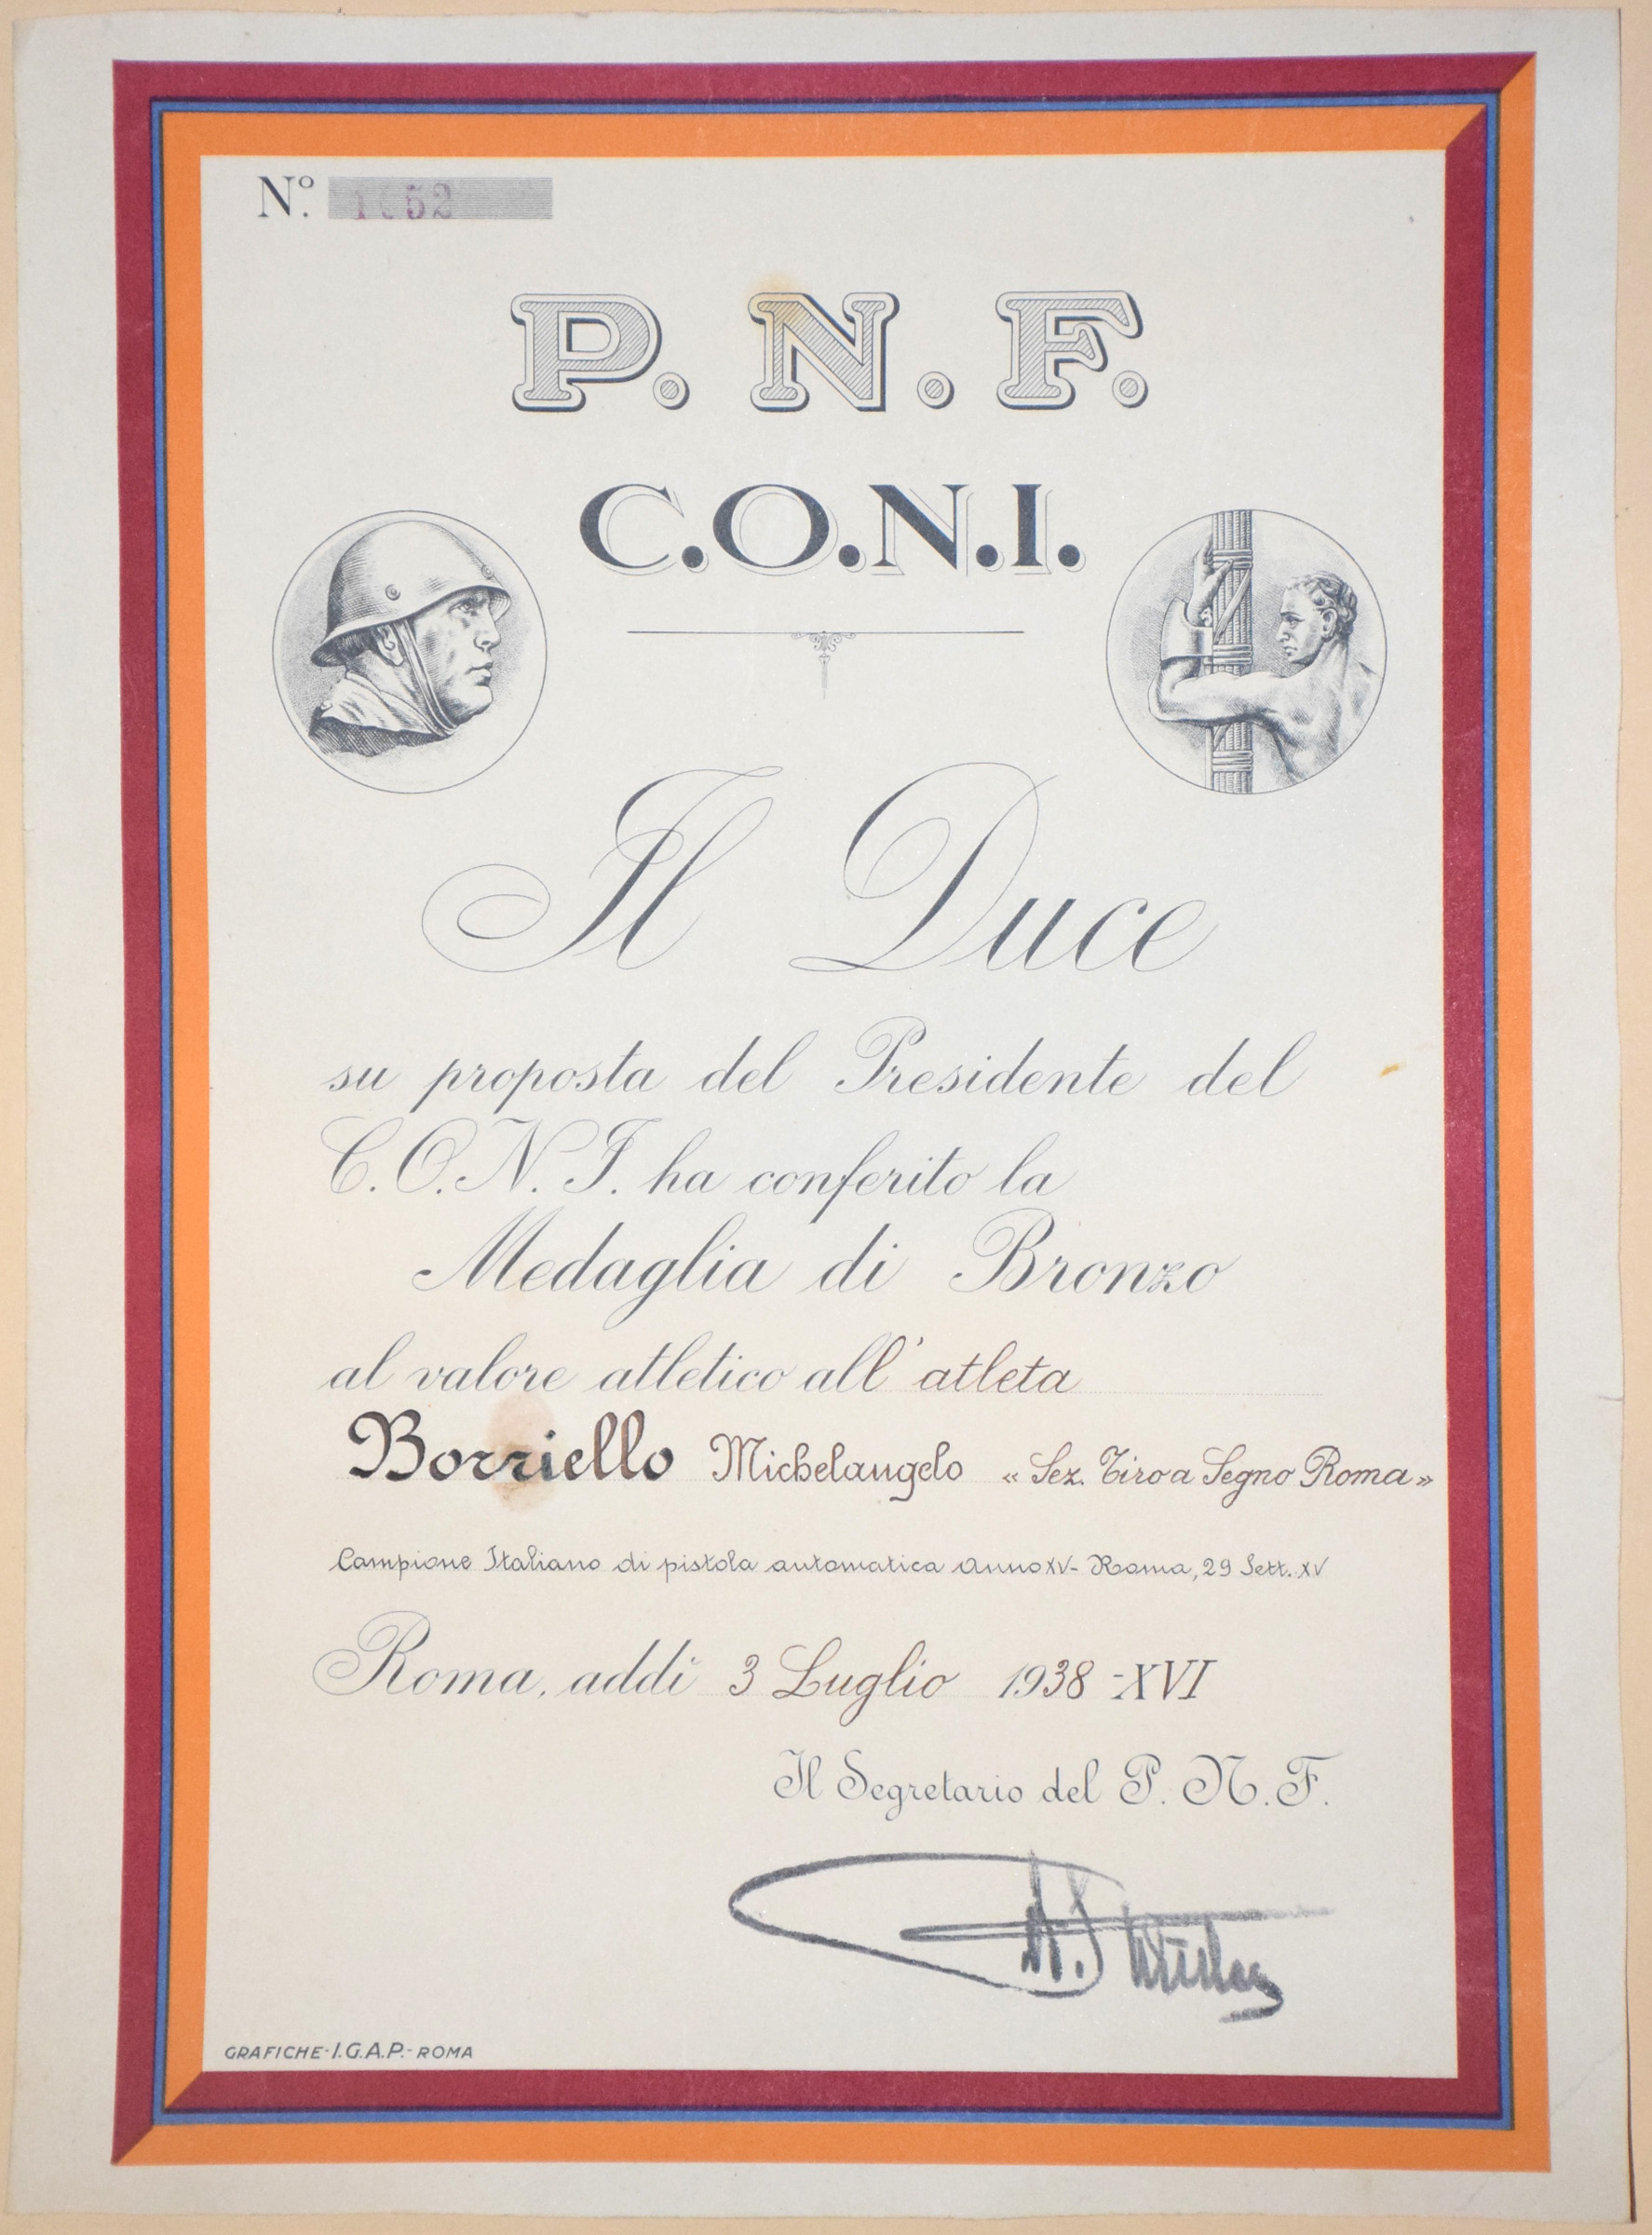 Nº.
P. N. F.
C.O.N.I.
Il Duce
su proposta del Presidente del
C.O.N.I. ha conferito la
Medaglia di Bronzo
al valore atletico all'atleta
Borriello Michelangelo « Sez. Tiro a Segno Roma »
Campione Italiano di pistola automatica Anno XV - Roma, 29 Sett. XV
Roma, addì 3 Luglio 1938 - XVI
Il Segretario del P. N. F.
GRAFICHE - I.G.A.P. - ROMA